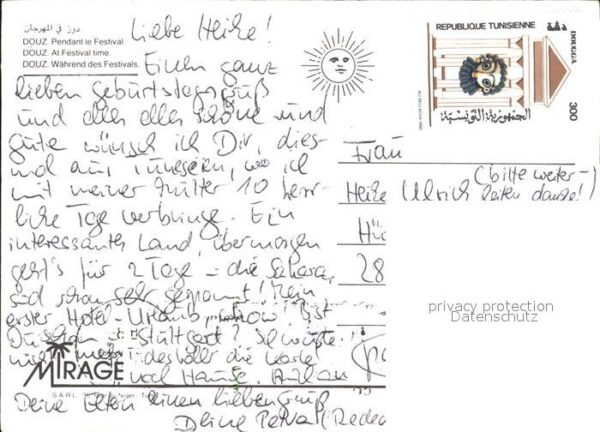 دوز في المهرجان
DOUZ. Pendant le Festival.
DOUZ. At Festival time.
DOUZ. Während des Festivals.
Liebe Heike!
Einen ganz
lieben Geburtstagsgruß
und alles alles Schöne und
Gute wünsch ich Dir, dies-
mal aus Tunesien, wo ich
mit meiner Mutter 10 herr-
liche Tage verbringe. Ein
interessantes Land, übermorgen
geht's für 2 Tage in die Sahara,
sind schon sehr gespannt! Mein
erster Hotel-Urlaub, wow! Bist
Du schon in Stuttgart? Ich wußte
nicht mehr, deshalb die Karte
nach Hause.
Deine Eltern einen lieben Gruß
Deine Petra
MIRAGE
S.A.R.L.
REPUBLIQUE TUNISIENNE
DOUGGA
300
الجمهورية التونسية
Frau
(bitte weiter-
Heike Ulrich leiten danke!)
28
privacy protection
Datenschutz